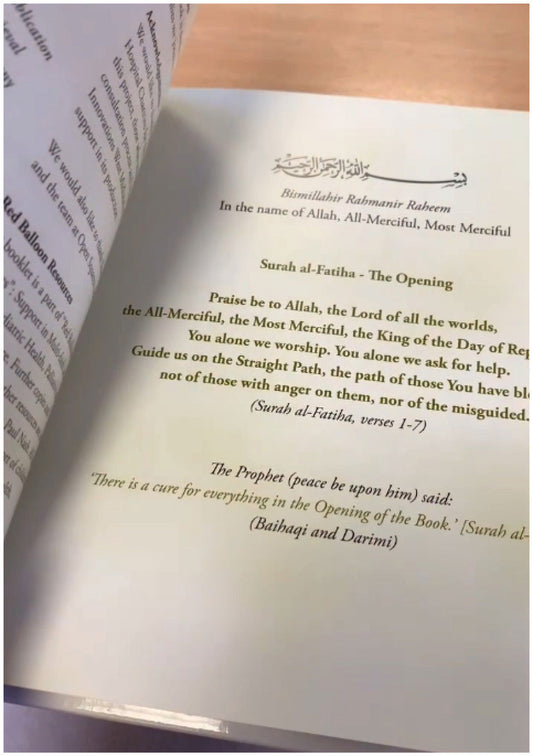 blication
Acknowledgem
We would
Hospital
this project
consultation
Innovations
support in its
We would also like to
and the team at Open
Red Balloon Resources
booklet is a part of 'Red
Support in
ediatric Health,
re. Further copies
ther resources
Paul Nash
بسم الله الرحمن الرحيم
Bismillahir Rahmanir Raheem
In the name of Allah, All-Merciful, Most Merciful
Surah al-Fatiha - The Opening
Praise be to Allah, the Lord of all the worlds,
the All-Merciful, the Most Merciful, the King of the Day of Rep
You alone we worship. You alone we ask for help.
Guide us on the Straight Path, the path of those You have ble
not of those with anger on them, nor of the misguided.
(Surah al-Fatiha, verses 1-7)
The Prophet (peace be upon him) said:
'There is a cure for everything in the Opening of the Book.' [Surah al-
(Baihaqi and Darimi)